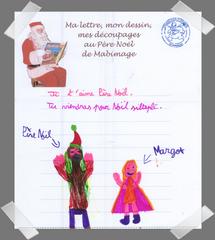 Ma lettre, mon dessin,
mes découpages
au Père Noël
de Mabimage
Je t'aime Père Noël.
Tu viendras pour Noël silteplè.
Père Noël
Margot